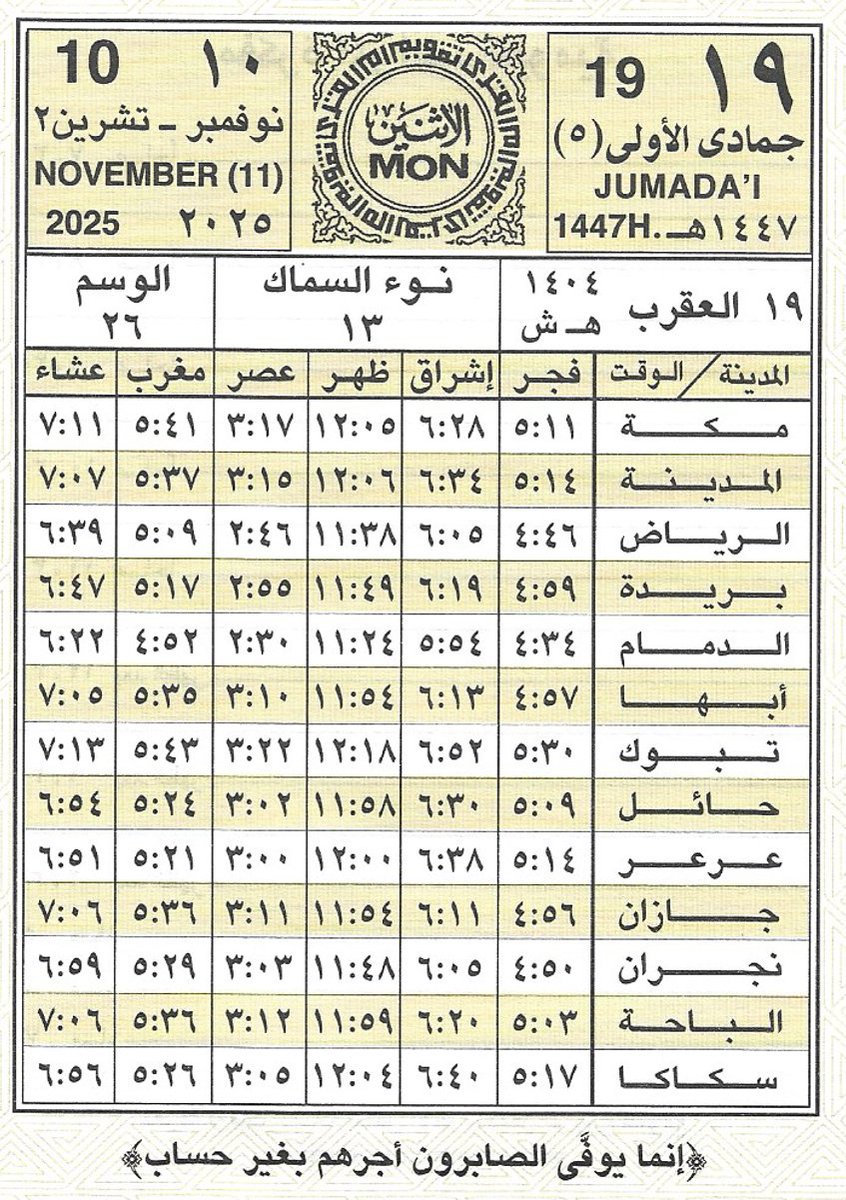 ١٩ 19
جمادى الأولى (٥)
JUMADA'I
1447H. ١٤٤٧هـ
تقويم أم القرى
الاثنين
MON
10 ١٠
نوفمبر - تشرين٢
NOVEMBER (11)
2025 ٢٠٢٥
١٩ العقرب ١٤٠٤ هـ ش
نوء السماك ١٣
الوسم ٢٦
المدينة / الوقت فجر إشراق ظهر عصر مغرب عشاء
مكة ٥:١١ ٦:٢٨ ١٢:٠٥ ٣:١٧ ٥:٤١ ٧:١١
المدينة ٥:١٤ ٦:٣٤ ١٢:٠٦ ٣:١٥ ٥:٣٧ ٧:٠٧
الرياض ٤:٤٦ ٦:٠٥ ١١:٣٨ ٢:٤٦ ٥:٠٩ ٦:٣٩
بريدة ٤:٥٩ ٦:١٩ ١١:٤٩ ٢:٥٥ ٥:١٧ ٦:٤٧
الدمام ٤:٣٤ ٥:٥٤ ١١:٢٤ ٢:٣٠ ٤:٥٢ ٦:٢٢
أبها ٤:٥٧ ٦:١٣ ١١:٥٤ ٣:١٠ ٥:٣٥ ٧:٠٥
تبوك ٥:٣٠ ٦:٥٢ ١٢:١٨ ٣:٢٢ ٥:٤٣ ٧:١٣
حائل ٥:٠٩ ٦:٣٠ ١١:٥٨ ٣:٠٢ ٥:٢٤ ٦:٥٤
عرعر ٥:١٤ ٦:٣٨ ١٢:٠٠ ٣:٠٠ ٥:٢١ ٦:٥١
جازان ٤:٥٦ ٦:١١ ١١:٥٤ ٣:١١ ٥:٣٦ ٧:٠٦
نجران ٤:٥٠ ٦:٠٥ ١١:٤٨ ٣:٠٣ ٥:٢٩ ٦:٥٩
الباحة ٥:٠٣ ٦:٢٠ ١١:٥٩ ٣:١٢ ٥:٣٦ ٧:٠٦
سكاكا ٥:١٧ ٦:٤٠ ١٢:٠٤ ٣:٠٥ ٥:٢٦ ٦:٥٦
﴿إنما يوفَّى الصابرون أجرهم بغير حساب﴾